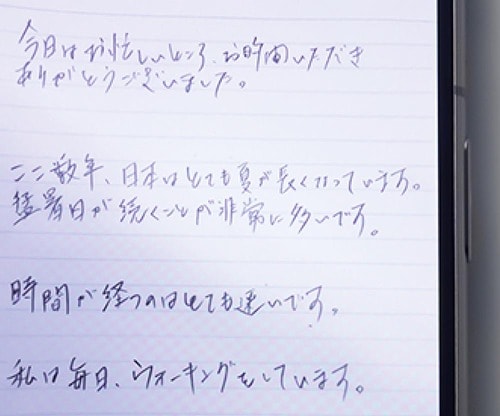 今日はお忙しいところ、お時間いただき
ありがとうございました。
ここ数年、日本はとても夏が長くなっています。
猛暑日が続くことが非常に多いです。
時間が経つのはとても速いです。
私は毎日、ウォーキングをしています。